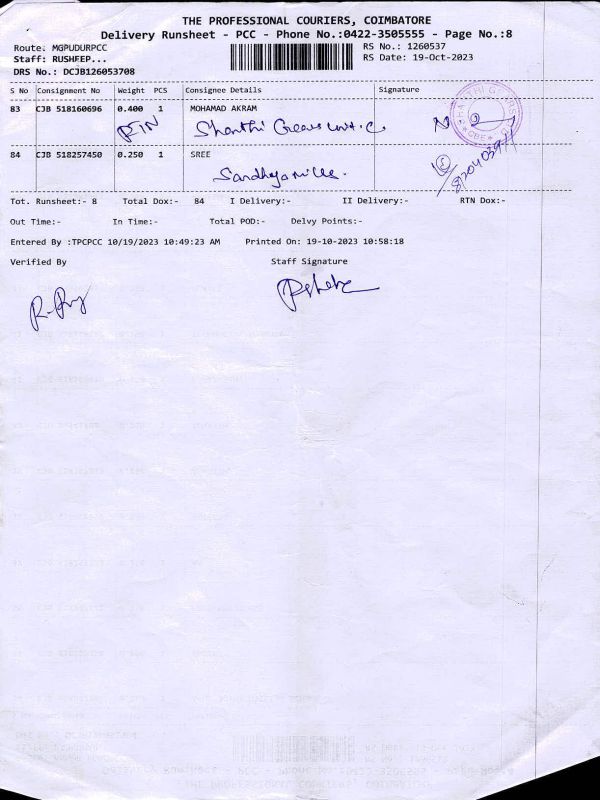 THE PROFESSIONAL COURIERS, COIMBATORE
Delivery Runsheet - PCC - Phone No.:0422-3505555 - Page No.:8
Route: MGPUDURPCC
RS No.: 1260537
Staff: RUSHEEP...
RS Date: 19-Oct-2023
DRS No.: DCJB126053708
S No Consignment No Weight PCS Consignee Details Signature
83 CJB 518160696 0.400 1 MOHAMAD AKRAM
Shanthi Gears
84 CJB 518257450 0.250 1 SREE
Sandhya mills.
Tot. Runsheet:- 8 Total Dox:- 84 I Delivery:- II Delivery:- RTN Dox:-
Out Time:- In Time:- Total POD:- Delvy Points:-
Entered By :TPCPCC 10/19/2023 10:49:23 AM Printed On: 19-10-2023 10:58:18
Verified By Staff Signature